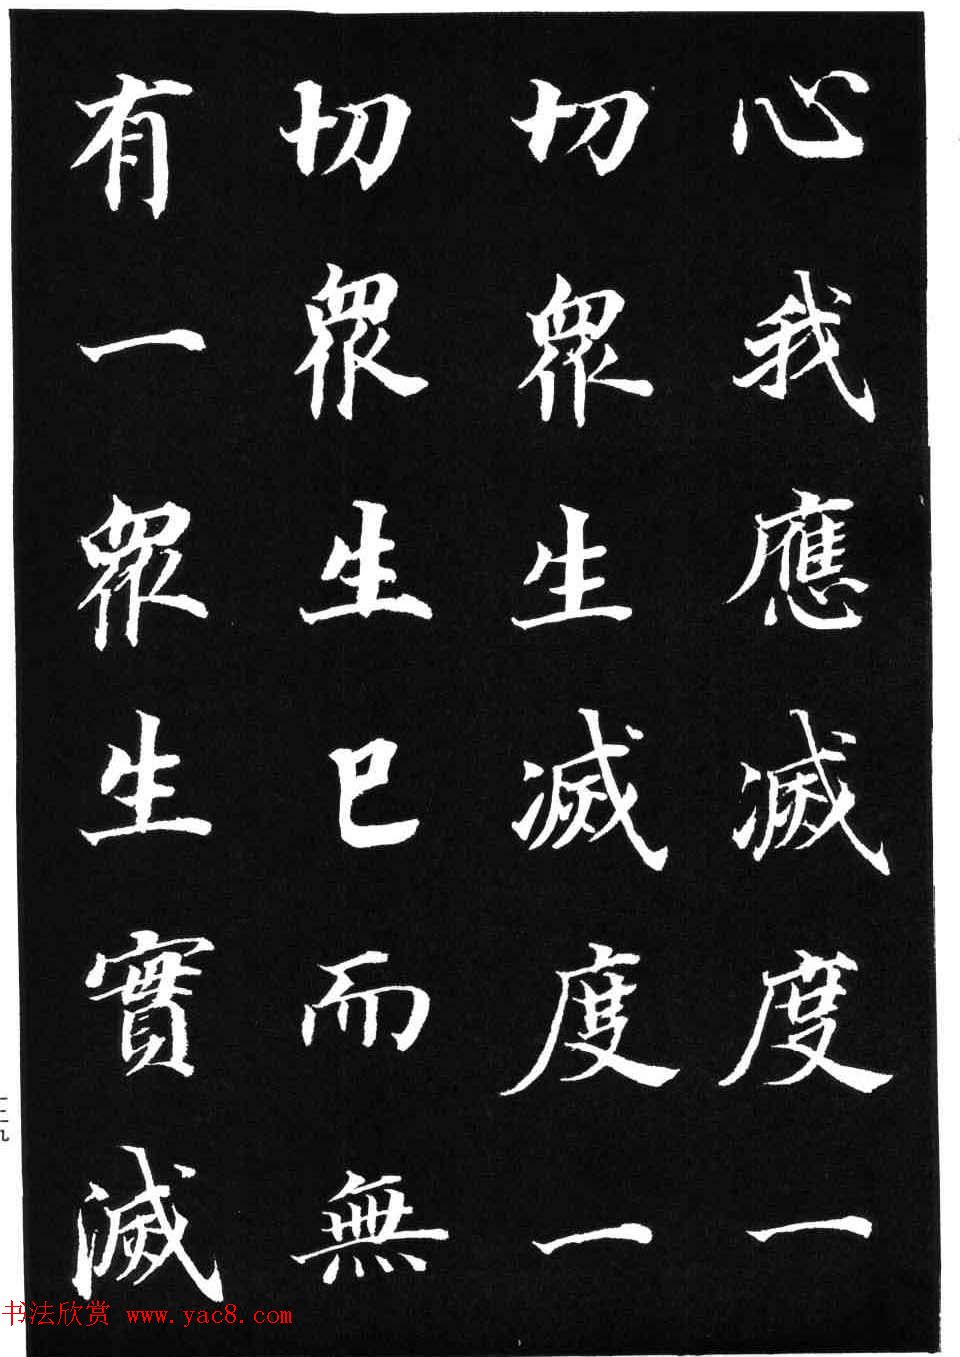 心我應滅度一
切眾生滅度一
切眾生已而無
有一眾生實滅
一二九
书法欣赏 www.yac8.com